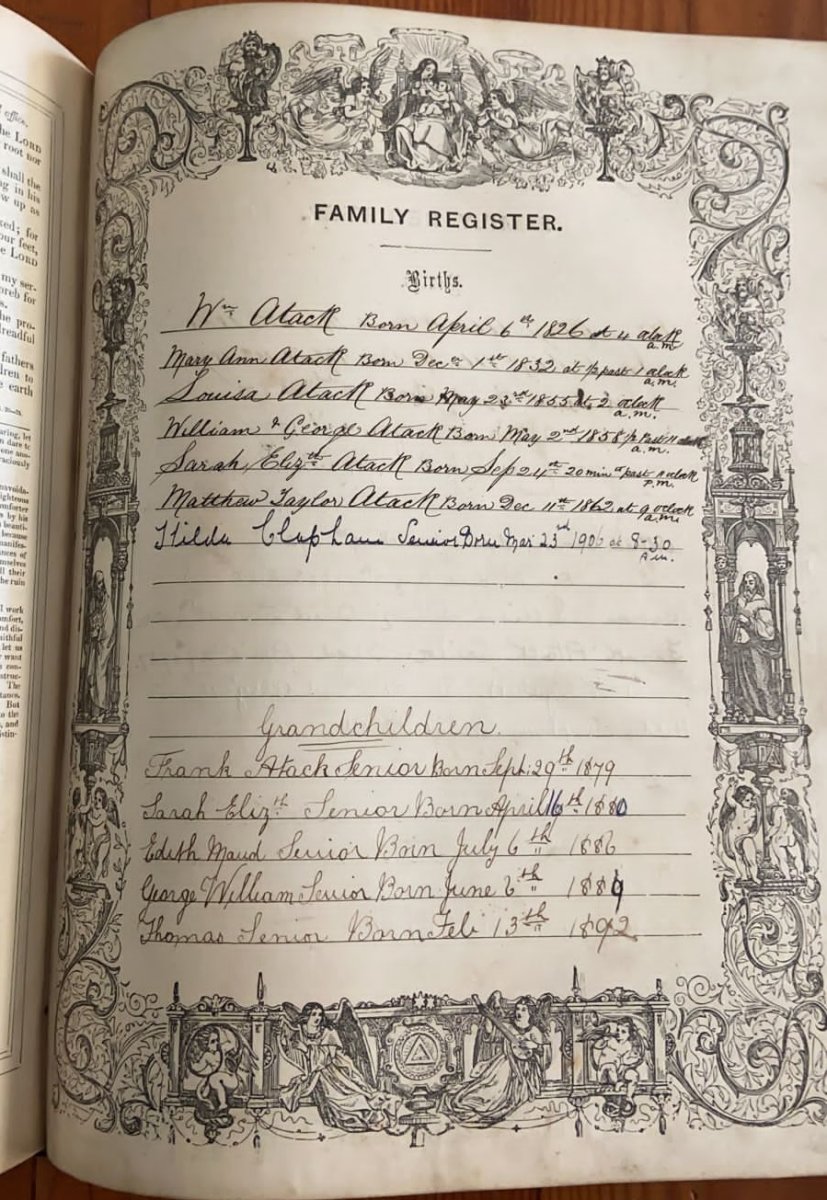 office.
he LORD
root nor
shall the
ng in his
w up as
ked; for
our feet,
e LORD
my ser-
oreb for
s.
he pro-
dreadful
fathers
dren to
e earth
FAMILY REGISTER.
Births.
Wm Atack Born April 6th 1826 at 4 oclock a.m
Mary Ann Atack Born Decr 1st 1832 at ½ past 1 oclock a.m.
Louisa Atack Born May 23rd 1855 at 2 oclock a.m.
William & George Atack Born May 2nd 1858 ½ Past 11 a.m.
Sarah Elizth Atack Born Sep 24th 20 min past oclock p.m.
Matthew Taylor Atack Born Dec 11th 1862 at 9 oclock a.m.
Hilda Clapham Senior Born Mar 23rd 1906 at 8-30 A.m.
Grandchildren.
Frank Atack Senior Born Sept. 29th 1879
Sarah Elizth Senior Born April 16th 1880
Edith Maud Senior Born July 6th 1886
George William Senior Born June 6th 1889
Thomas Senior Born Feb 13th 1892